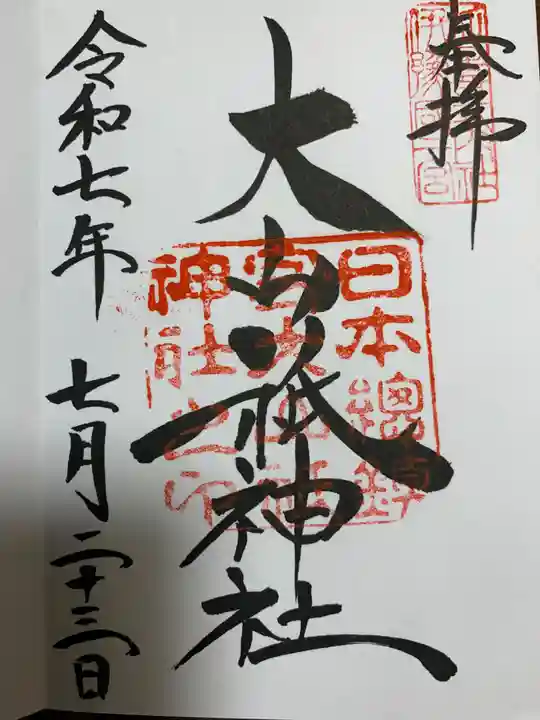 奉拝
大山祇神社
日本總鎮
守大山祇
神社之印
令和七年 七月二十三日